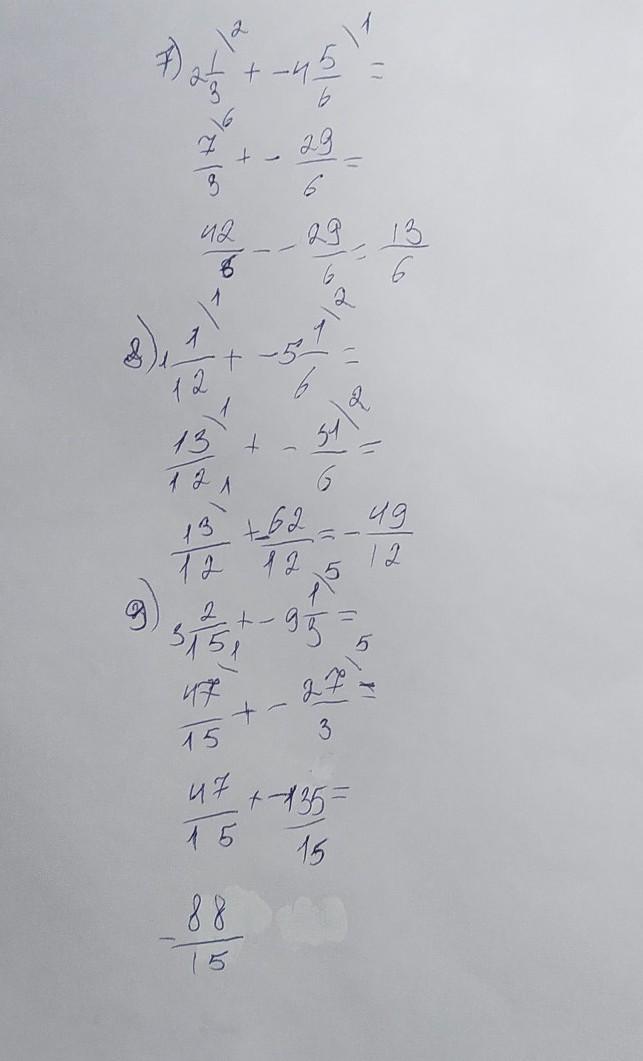 7) 2 1/3 \2 + -4 5/6 \1 =
7/3 \6 + - 29/6 =
42/6 - - 29/6 = 13/6
8) 1 1/12 \1 + -5 1/6 \2 =
13/12 \1 + - 31/6 \2 =
13/12 \1 + -62/12 = - 49/12
9) 3 2/15 + -9 1/3 \5 =
47/15 \1 + - 27/3 \5 =
47/15 + -135/15 =
- 88/15